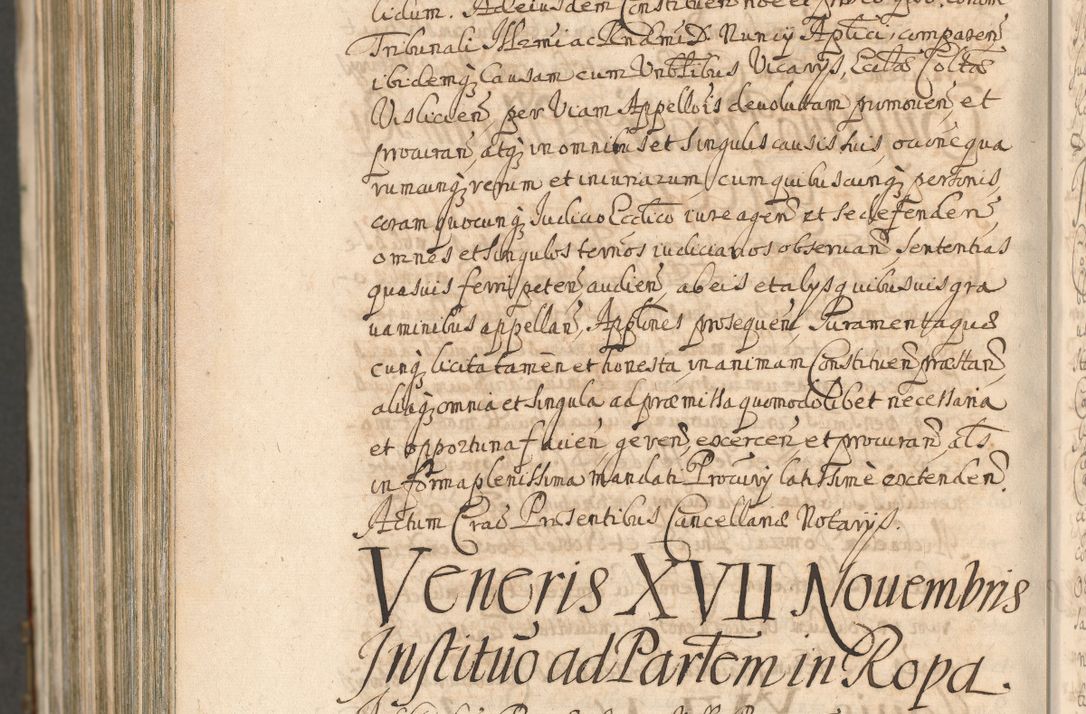 lidum. Ad eiusdem Constituen noe et
Tribunali Illmi ac Rndmi D. Nuncij Aplici, comparen
ibidemq; Causam cum Vnblibus Vicarijs, Ecclae Colltae
Vislicien, per Viam Appellois deuolutam promouen, et
procuran, atq; in omnibus et singulis causis suis, ac
rumcunq; rerum et iniuriarum, cum quibuscunq; personis,
coram quocunq; Iudicio Ecclico iure agen et se defenden
omnes et singulos ternos iudiciarios obseruan, Sententias
quasuis ferri peten, audien, ab eis et alijs quibusuis gra
uaminibus appellan, Applones prosequen, Iuramentaque
cunq; licita tamen et honesta, in animam Constituen praestan,
aliaq; omnia et singula ad praemissa quomodolibet necessaria
et opportuna facien, geren, excercen, et procuran, als
in forma plenissima mandati Procurij latissime extenden.
Actum Crae Praesentibus Cancellariae Notarijs.
Veneris XVII Nouembris
Institutio ad Partem in Ropa.